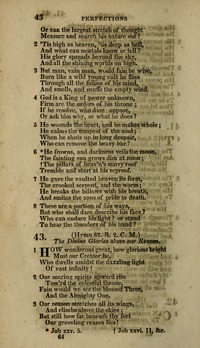 43 PERFECTIONS
Or can the largest stretch of thought
Measure and search his nature out?
2 'Tis high as heaven, 'tis deep as hell,
And what can mortals know or tell?
His glory spreads beyond the sky,
And all the shining worlds on high.
3 But man, vain man, would fain be wise,
Born like a wild young colt he flies
Through all the follies of his mind,
And smells, and snuffs the empty wind.
4 God is a King of power unknown,
Firm are the orders of his throne;
If he resolve, who dare oppose,
Or ask him why, or what he does?
5 He wounds the heart, and he makes whole;
He calms the tempest of the soul;
When he shuts up in long despair,
Who can remove the heavy bar?
6 *He frowns, and darkness veils the moon,
The fainting sun grows dim at noon;
†The pillars of heav'n's starry roof
Tremble and start at his reproof.
7 He gave the vaulted heaven its form,
The crooked serpent, and the worm;
He breaks the billows with his breath,
And smites the sons of pride to death.
8 These are a portion of his ways,
But who shall dare describe his face?
Who can endure his light? or stand
To hear the thunders of his hand?
43. (HYMN 87. B. 2. C. M.)
The Divine Glories above our Reason.
1 HOW wonderous great, how glorious bright
Must our Creator be,
Who dwells amidst the dazzling light
Of vast infinity!
2 Our soaring spirits upward rise
Tow'rd the celestial throne,
Fain would we see the blessed Three,
And the Almighty One.
3 Our reason stretches all its wings,
And climbs above the skies;
But still how far beneath thy feet
Our groveling reason lies!
* Job xxv. 5. † Job xxvi. 11, &c.
64